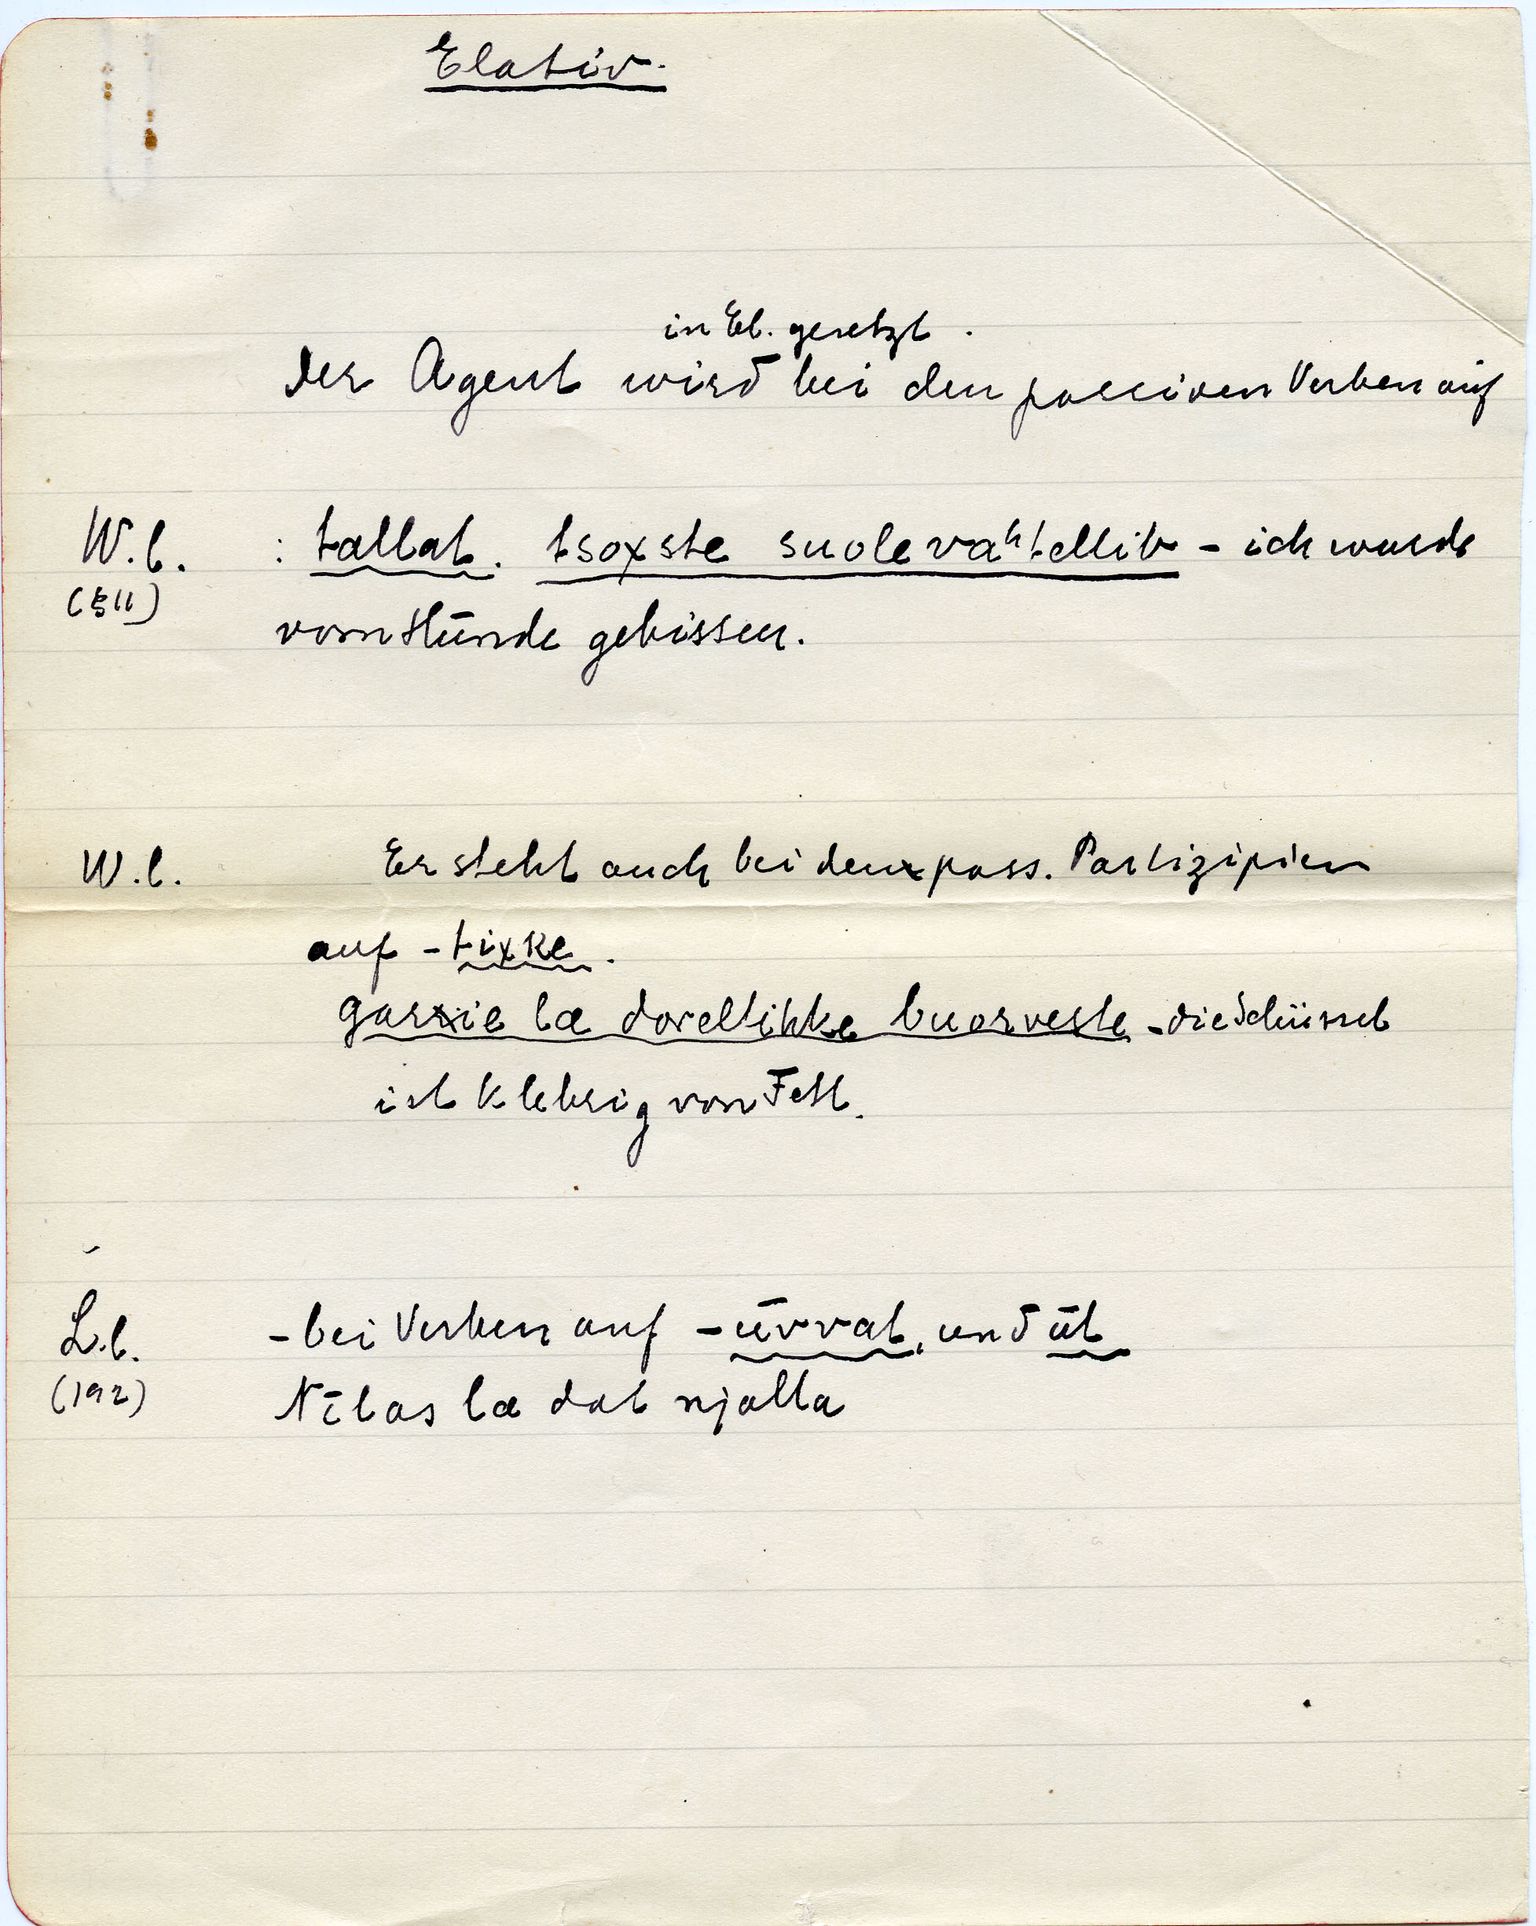 Elativ.
in El. gesetzt.
Der Agent wird bei den passiven Verben auf
W.l. : tallat. tsoxste suolevaʰtelliv – ich wurde
(§11) vom Hunde gebissen.
W.l. Er steht auch bei den pass. Partizipien
auf -tixke.
garrie læ dareltihke buorveste – die Schüssel
ist klebrig von Fett.
L.l. – bei Verben auf -ūvvat, und ūt
(192) Nīlas læ dat njalla